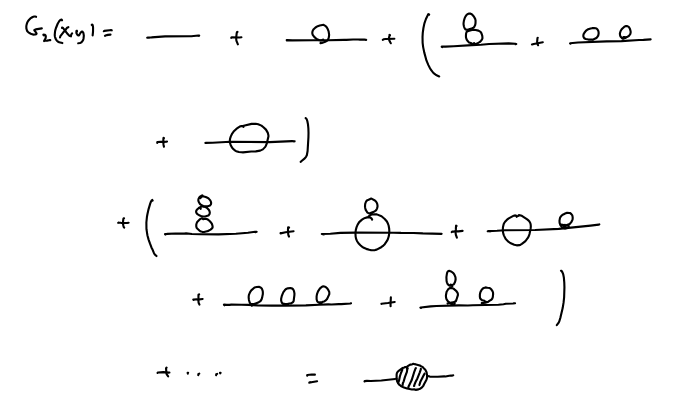 G₂(x,y) = + + ( +
+ )
+ ( + +
+ + )
+ .... =